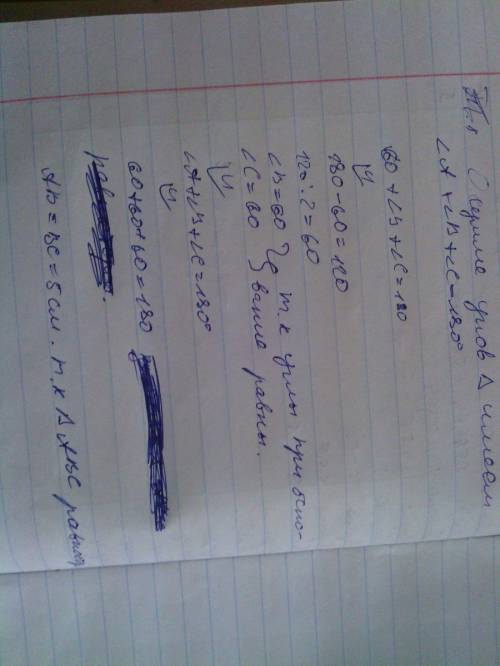 Т.к Сумма углов Δ имеем
∠A + ∠B + ∠C = 180°
60 + ∠B + ∠C = 180
⇓
180 - 60 = 120
120 : 2 = 60
∠B = 60 } т.к углы при осно-
∠C = 60 } вание равны.
⇓
∠A + ∠B + ∠C = 180°
⇓
60 + 60 + 60 = 180
AB = BC = 5 см. т.к Δ ABC равност